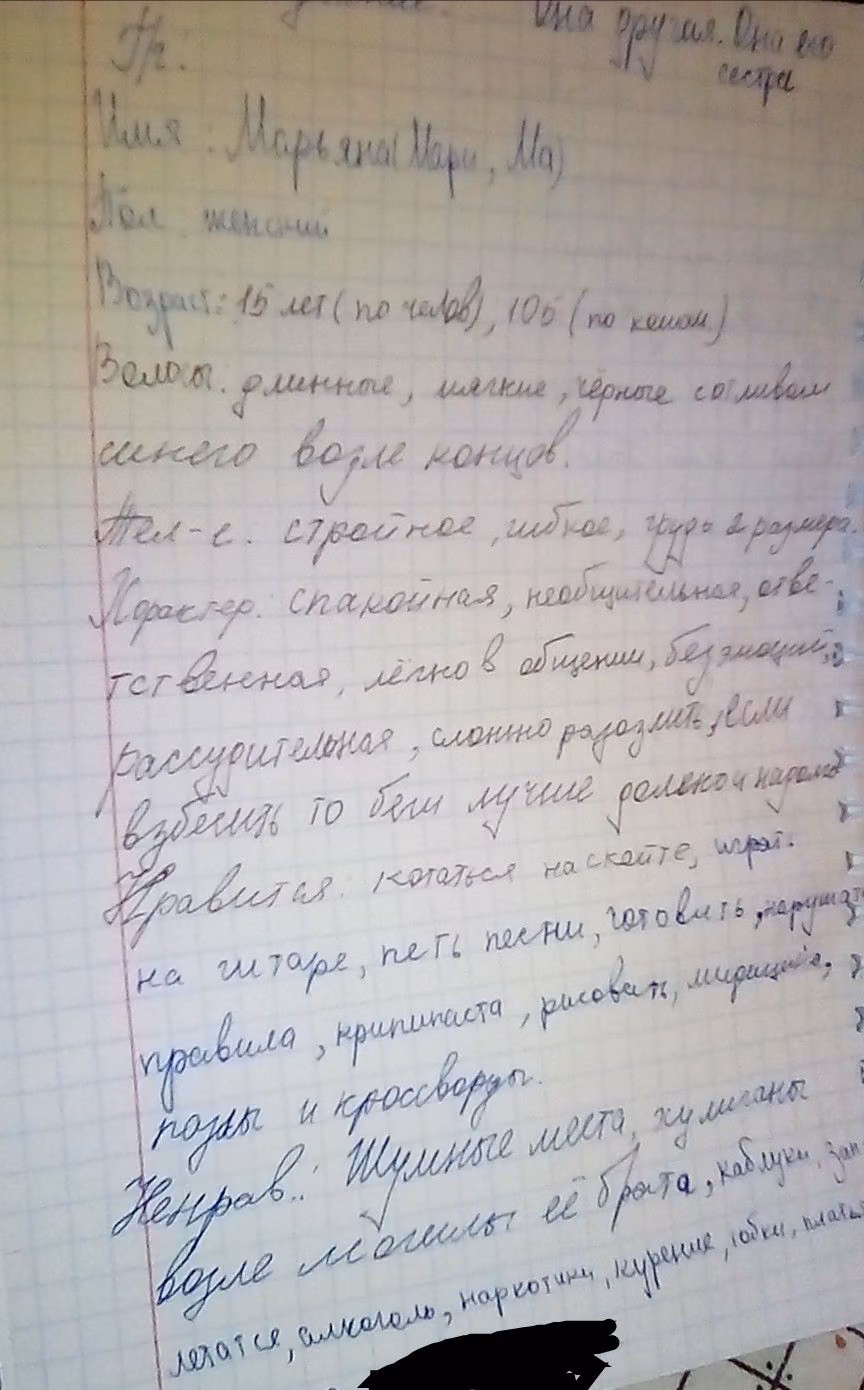 Она другая. Она его
сестра
Гг:
Имя: Марьяна(Мари, Ма)
Пол. женский
Возраст: 15 лет (по челов), 105 (по кошач)
Волосы. длинные, мягкие, чёрные с отливом
синего возле концов.
Тел-е. стройное, гибкое, грудь 2 размера.
Характер: спакойная, необщительная, отве-
тственная, лёгко в общении, без эмоций,
рассудительная, сложно разозлить, если
взбесить то беги лучше далеко и надолго
Нравится: кататься на скейте, играт.
на гитаре, петь песни, готовить, нарушать
правила, крипипаста, рисовать,
позлы и кроссворды.
Ненрав.: Шумные места, хулиганы
возле могилы её брата, каблуки, зап
летатся, алкоголь, наркотики, курение, юбки, платья